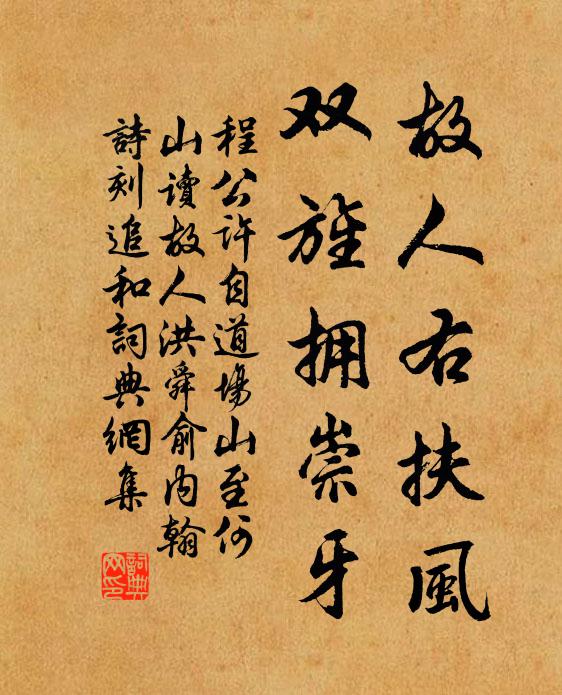 故人右扶風
双旌拥崇牙
程公許自道場山至何
山讀故人洪舜俞内翰
詩刻追和詞典網集
詞典网印